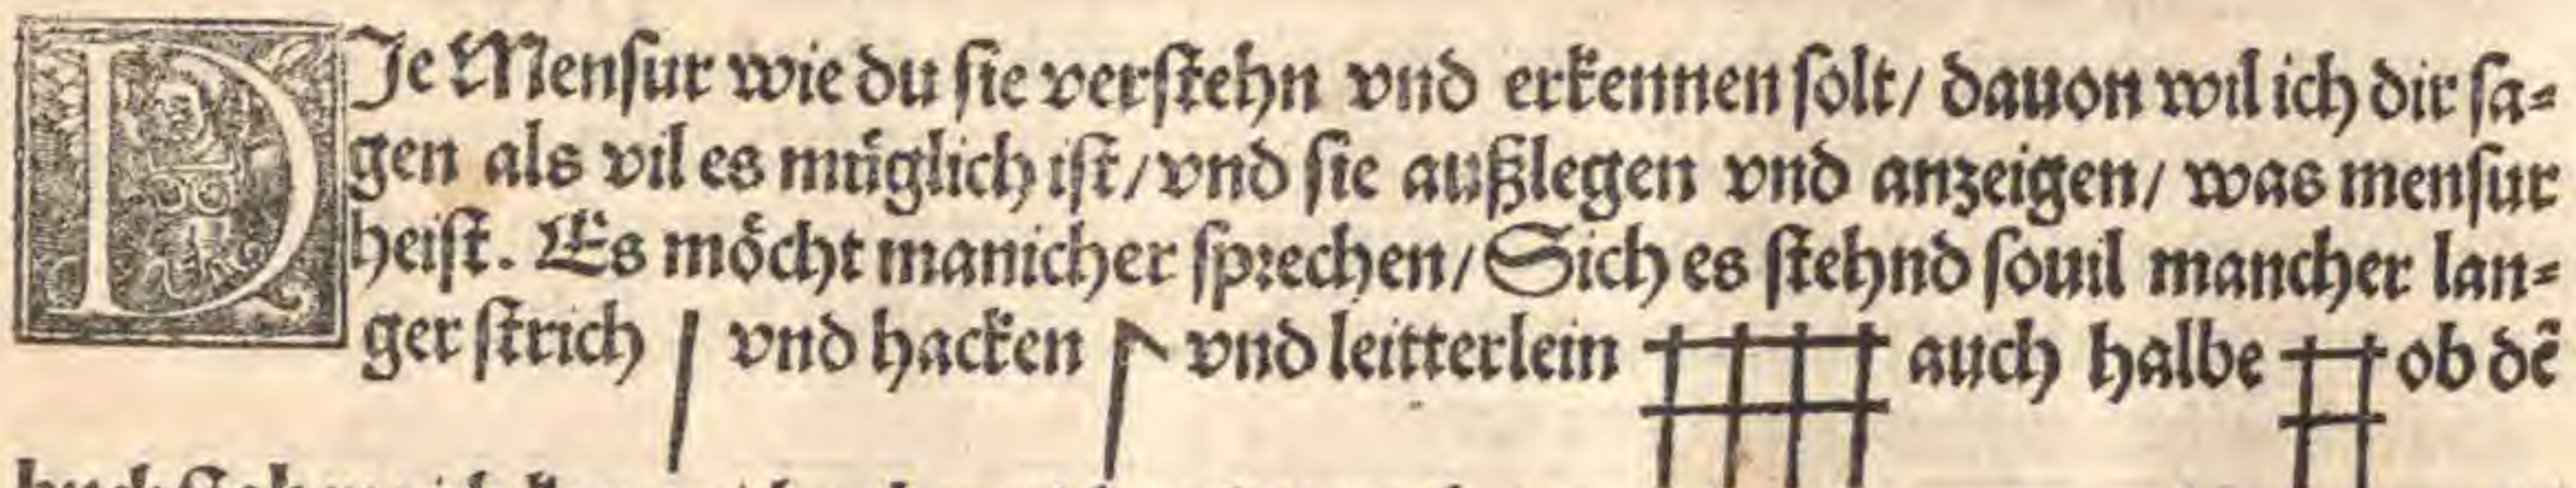 DIe Mensur wie du sie verstehn vnd erkennen solt/ dauon wil ich dir sa⸗
gen als vil es müglich ist/ vnd sie außlegen vnd anzeigen/ was mensur
heist. Es möcht manicher sprechen/ Sich es stehnd souil mancher lan⸗
ger strich vnd hacken vnd leitterlein auch halbe ob dẽ